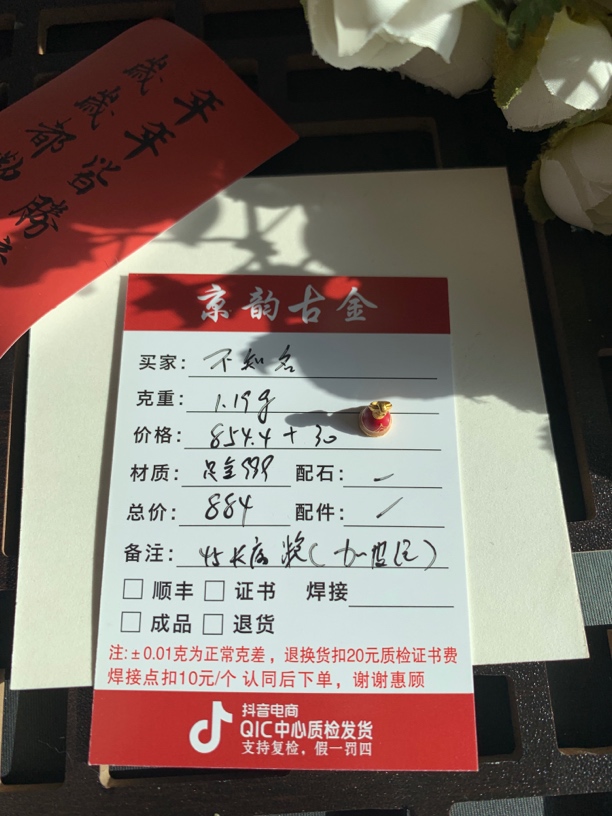 年年皆勝
歲歲都
京韵古金
买家: 不知名
克重: 1.19g
价格: 854.4 + 30
材质: 足金999 配石: -
总价: 884 配件: /
备注:
顺丰 证书 焊接
成品 退货
注:±0.01克为正常克差，退换货扣20元质检证书费
焊接点扣10元/个 认同后下单，谢谢惠顾
抖音电商
QIC中心质检发货
支持复检，假一罚四